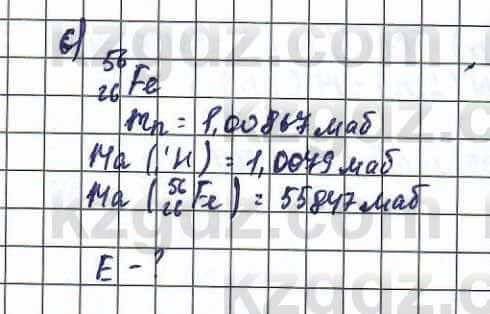 6)
⁵⁶₂₆Fe
mₙ = 1,00867 маб
Ma (¹H) = 1,0079 маб
Ma (⁵⁶₂₆Fe) = 55847 маб
E - ?